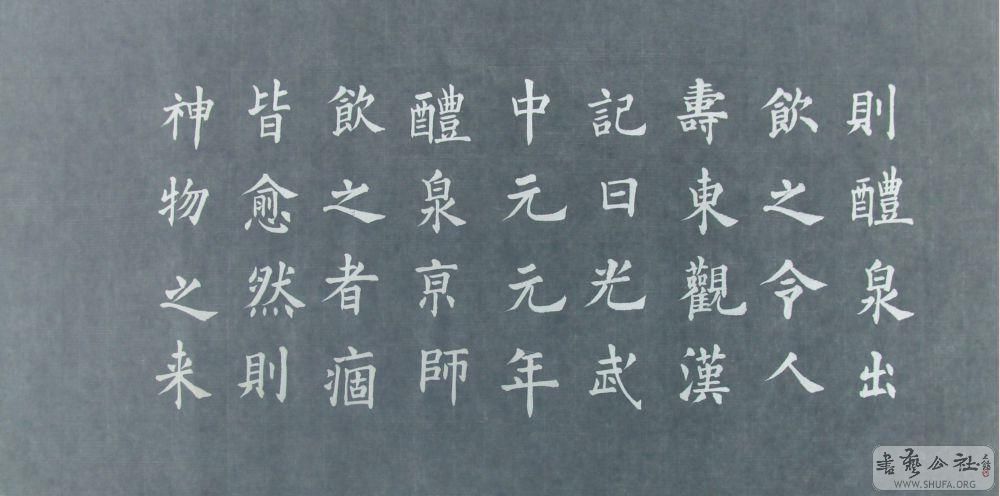 則醴泉出
飲之令人
壽東觀漢
記曰光武
中元元年
醴泉京師
飲之者痼
皆愈然則
神物之来
書藝公社
WWW.SHUFA.ORG